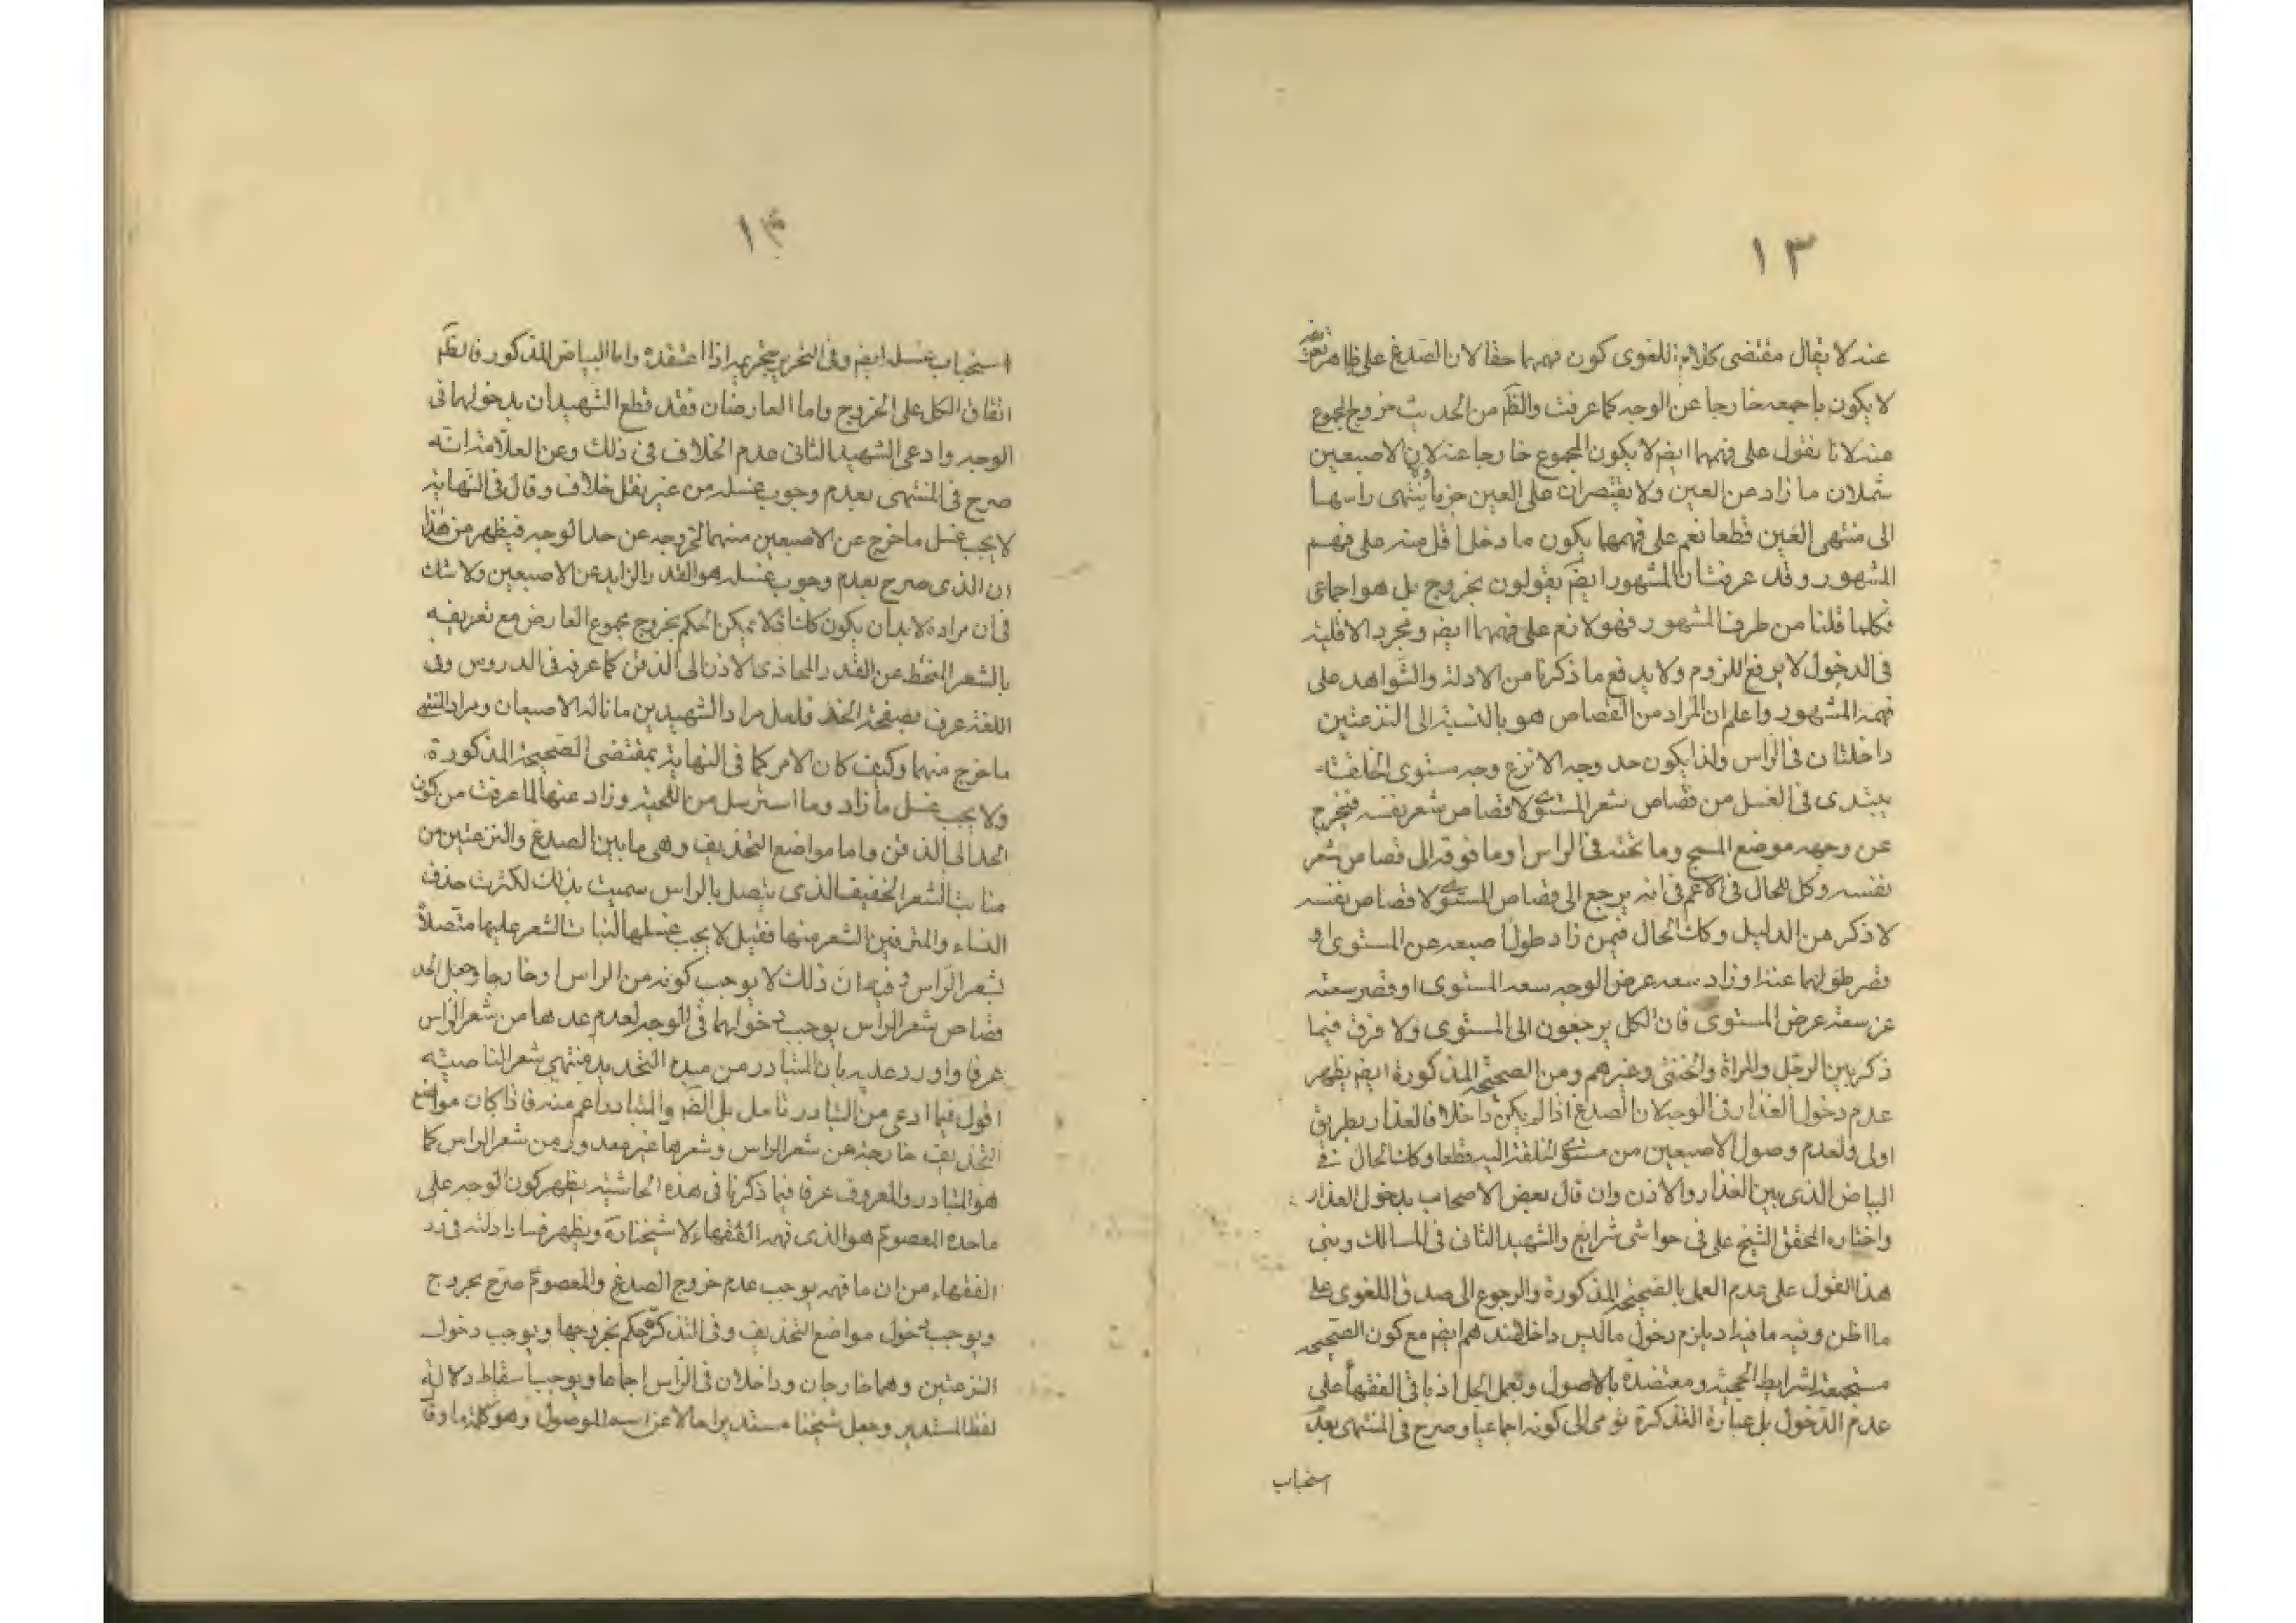 ١٣
عنه لا يقال مقتضى كلام اللغوى كون فهمها حقا لان الصدغ على ظاهر
لا يكون باجمعه خارجا عن الوجه كما عرفت والظّم من الحديث خروج المجموع
عنه لانا نقول على فهمهما ايضم لا يكون المجموع خارجا عنه لان الاصبعين
تشملان ما زاد عن العين ولا يقتصران على العين جزما وينتهى راسها
الى منتهى العين قطعا نعم على فهمها يكون ما دخل اقل منه على فهم
المشهور وقد عرفت ان المشهور ايضم يقولون بخروج بل هو اجماعى
فكلما قلنا من طرف المشهور فهو لازم على فهمهما ايضم ومجرد الاقلية
فى الدخول لا يرفع اللزوم ولا يدفع ما ذكرنا من الادلة والشواهد على
فهمه المشهور واعلم ان المراد من القصاص هو بالنسبة الى النزعتين
داخلتان فى الراس ولذا يكون حد وجه الانزع وجه مستوى الخلقة
يبتدى فى الغسل من قصاص شعر المستوى لا قصاص شعر نفسه فيخرج
عن وجهه موضع المسح وما تحته فى الراس وما فوقه الى قصاص شعر
نفسه وكل الحال فى الاغم فى انه يرجع الى قصاص المستوى لا قصاص نفسه
لا ذكر من الدليل وكذا الحال فيمن زاد طول اصبعه عن المستوى او
قصر طولهما عنه او زاد سعه عرض الوجه سعه المستوى او قصر سعته
عن سعته عرض المستوى فان الكل يرجعون الى المستوى ولا فرق فيما
ذكر بين الرجل والمراة والخنثى وغيرهم ومن الصحيحه المذكورة ايضم يظهر
عدم دخول العذار فى الوجه لان الصدغ اذا لم يكن داخلا فالعذار بطريق
اولى ولعدم وصول الاصبعين من مستوى الخلقة اليه قطعا وكذا الحال فى
البياض الذى بين العذار والاذن وان قال بعض الاصحاب بدخول العذار
واختاره المحقق الشيخ على فى حواشى شرايع والشهيد الثانى فى المسالك وبنى
هذا القول على عدم العمل بالصحيحه المذكورة والرجوع الى صدق اللغوى على
ما اظن وفيه ما فيه اذ يلزم دخول ما ليس داخلا عندهم ايضم مع كون الصحيحه
مستجمعة لشرايط الحجية ومعتضدة بالاصول وبعمل الجل اذ باقى الفقهاء على
عدم الدخول بل عبارة التذكرة تومى الى كونه اجماعيا وصرح فى المنتهى بعدم
استحباب
١٤
استحباب غسله ايضم وفى التحرير يحرم اذا اعتقده واما البياض المذكور فالظم
اتفاق الكل على الخروج واما العارضان فقد قطع الشهيدان بدخولهما فى
الوجه وادعى الشهيد الثانى عدم الخلاف فى ذلك وعن العلامة انه
صرح فى المنتهى بعدم وجوب غسله من غير نقل خلاف وقال فى النهاية
لا يجب غسل ما خرج عن الاصبعين منهما لخروجه عن حد الوجه فيظهر من هذا
ان الذى صرح بعدم وجوب غسله هو القدر الزايد عن الاصبعين ولا شك
فى ان مراده لا بد ان يكون كذلك فلا يمكن الحكم بخروج مجموع العارض مع تعريفه
بالشعر المنحط عن القدر المحاذى الاذن الى الذقن كما عرفه فى الدروس وفى
اللغة عرف بصفحة الخد فلعل مراد الشهيدين ما ناله الاصبعان ومراد المنتهى
ما خرج منهما وكيف كان الامر كما فى النهاية بمقتضى الصحيحة المذكورة
ولا يجب غسل ما زاد وما استرسل من اللحية وزاد عنها لما عرفت من كون
الحد الى الذقن واما مواضع التحذيف وهى ما بين الصدغ والنزعتين من
منابت الشعر الخفيف الذى يتصل بالراس سميت بذلك لكثرت حذف
النساء والمترفين الشعر منها فقيل لا يجب غسلها لنبات الشعر عليها متصلاً
بشعر الراس وفيه ان ذلك لا يوجب كونه من الراس او خارجا وجعل الحد
قصاص شعر الراس يوجب دخولهما فى الوجه لعدم عدها من شعر الراس
عرفا واورد عليه بان المتبادر من مبدء التحديد منتهى شعر الناصية
اقول فيما ادعى من التبادر تامل بل الظم والمتبادر اعم منه فاذا كان مواضع
التحذيف خارجة عن شعر الراس وشعرها غير معدود من شعر الراس كما
هو المتبادر والمعروف عرفا فيما ذكرنا فى هذه الحاشية يظهر كون الوجه على
ما حده المعصوم هو الذى فهمه الفقهاء لا شيخنا ره ويظهر فساد ادلته فى رد
الفقهاء من ان ما فهمه يوجب عدم خروج الصدغ والمعصوم صرح بخروج
ويوجب دخول مواضع التحذيف وفى التذكرة حكم بخروجها ويوجب دخول
النزعتين وهما خارجان وداخلان فى الراس اجماعا ويوجب اسقاط دلالة
لفظ المستدير وجعل شيخنا مستديرا حالا عن الموصول وهو كلمة ما وقا